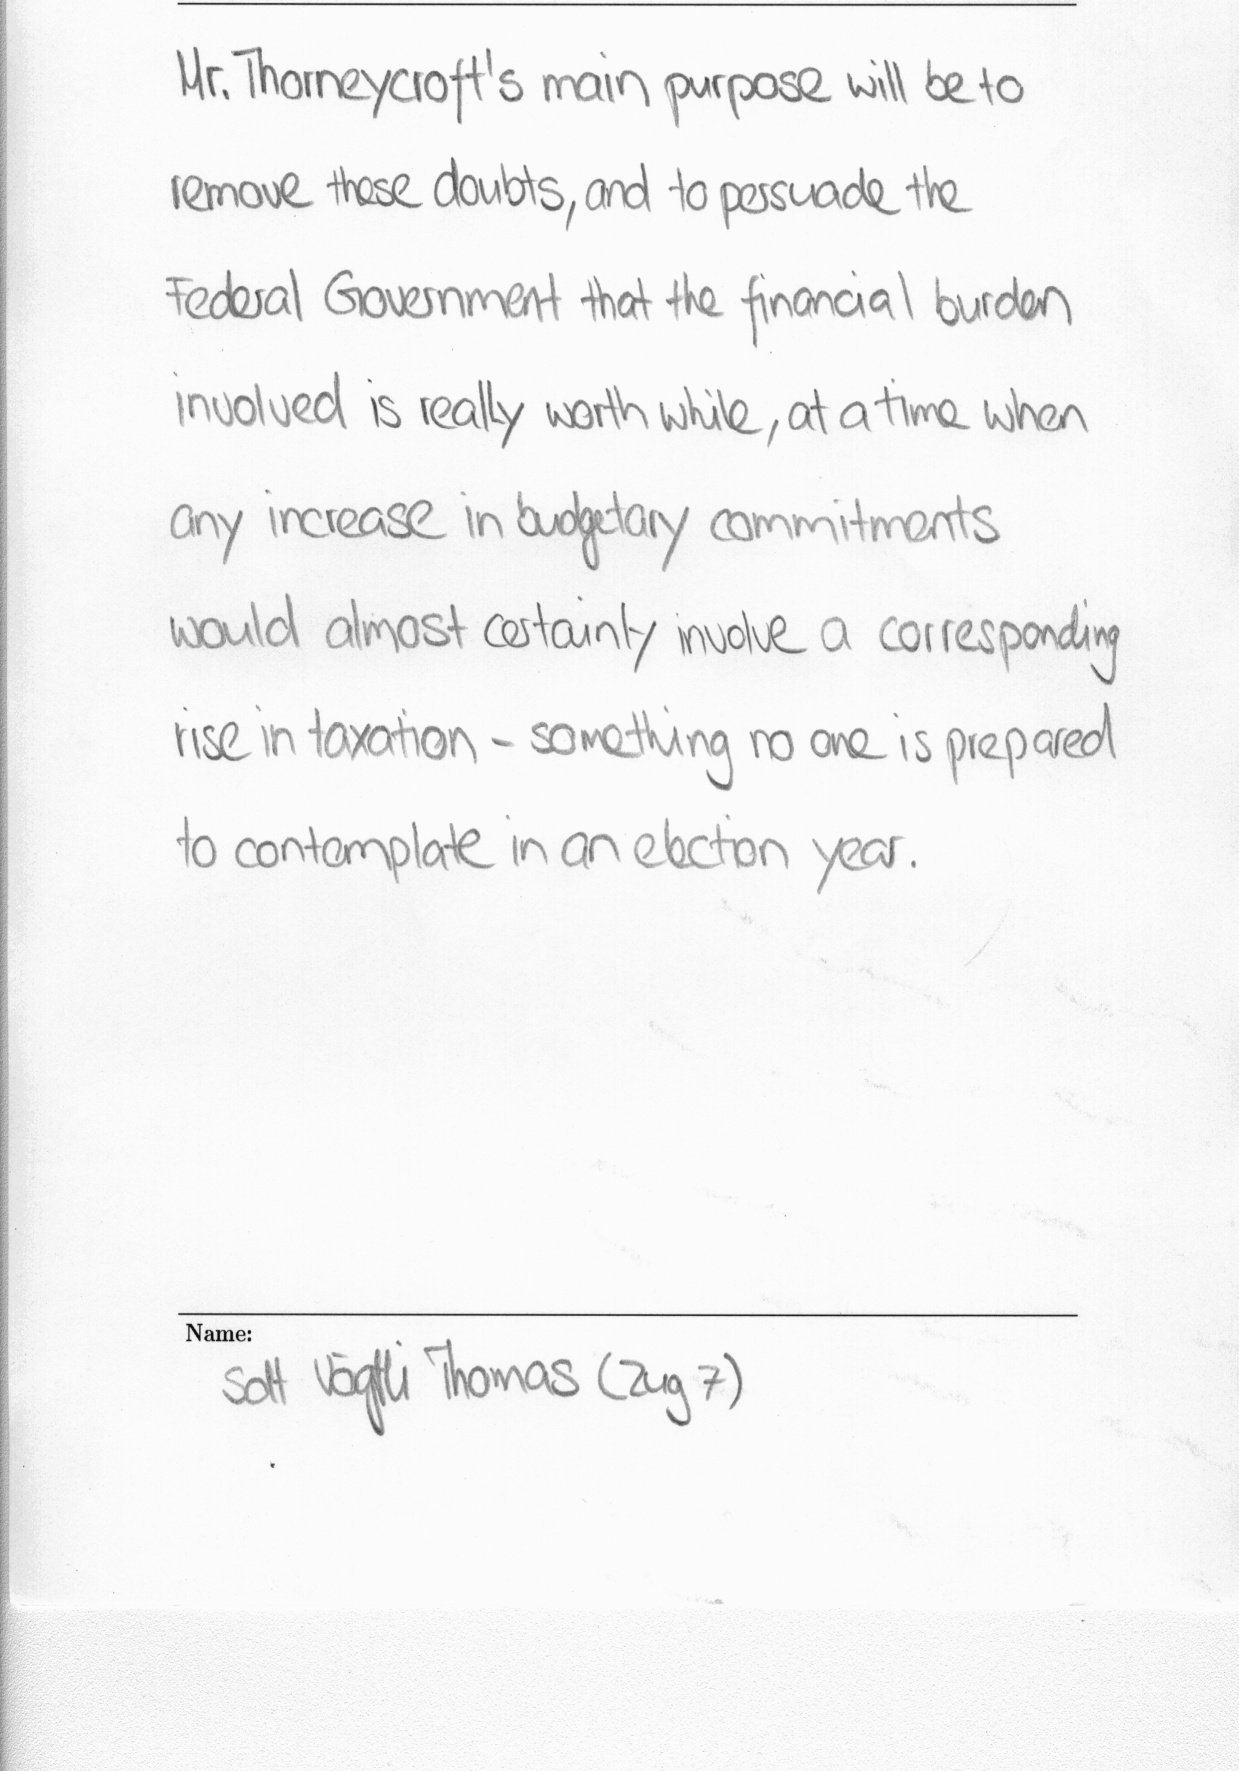 Mr. Thorneycroft's main purpose will be to
remove these doubts, and to persuade the
Federal Government that the financial burden
involved is really worth while, at a time when
any increase in budgetary commitments
would almost certainly involve a corresponding
rise in taxation - something no one is prepared
to contemplate in an election year.
Name:
Sdt Vögtli Thomas (Zug 7)